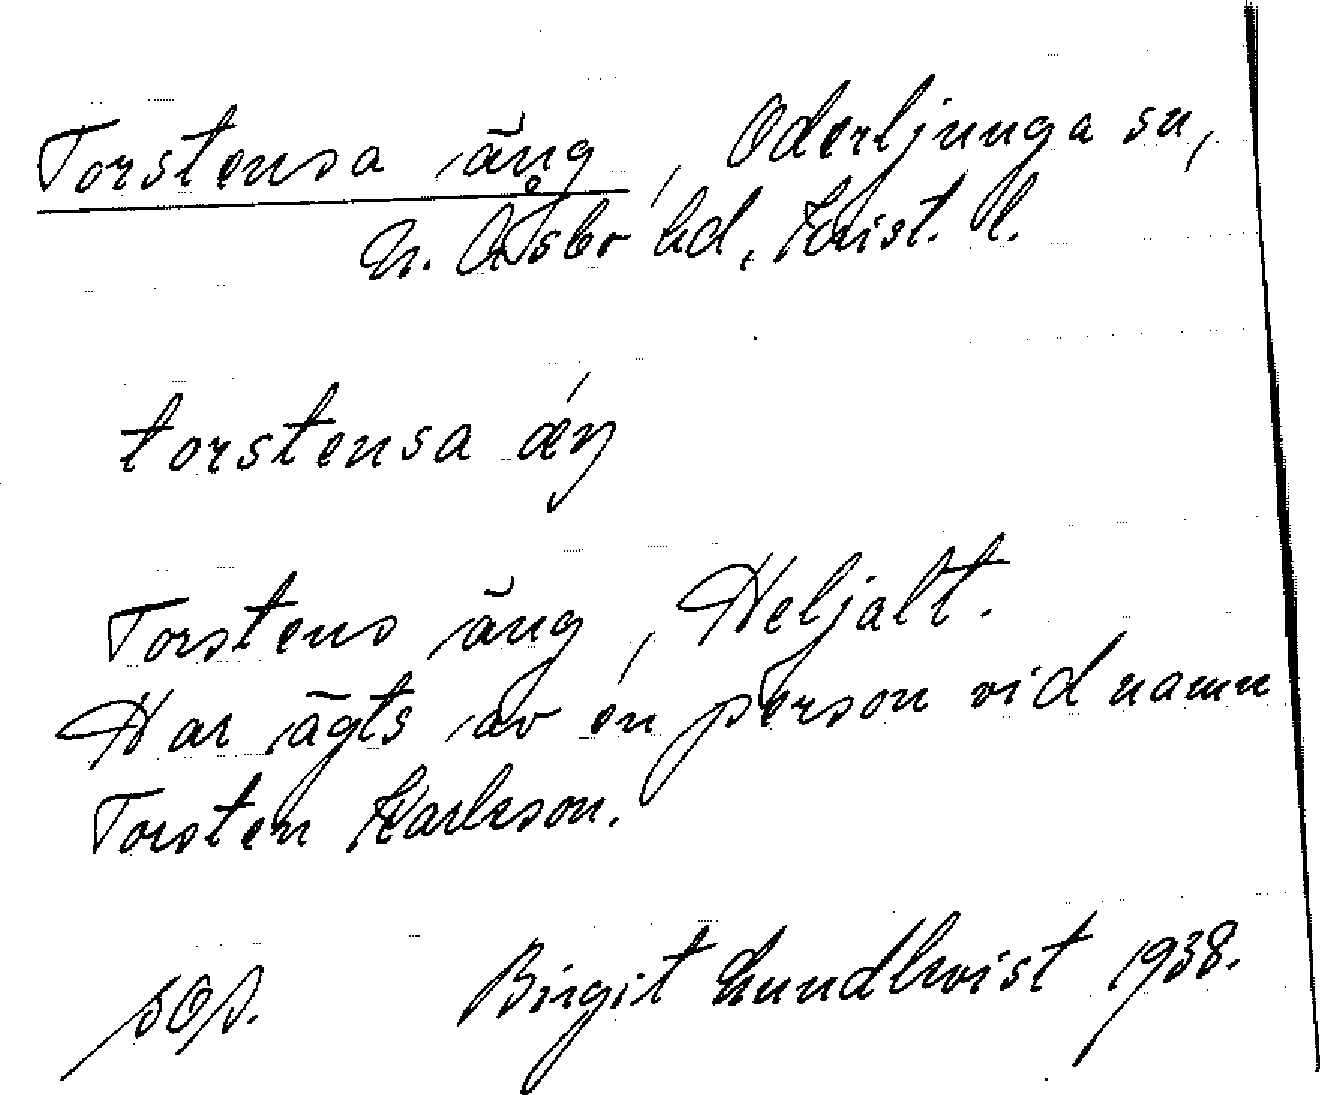 Torstensa äng, Oderljunga sn,
N. Åsbo hd, Krist. l.
torstensa ǽŋ
Torstens äng, Heljalt.
Har ägts av en person vid namn
Torsten Karlsson.
Birgit Lundkvist 1938.